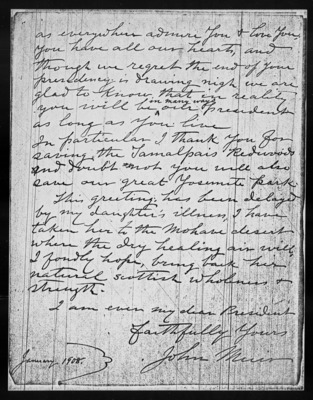 as everywhere admire You & love You,
You have all our hearts, and
though we regret the end of your
presidency is drawing nigh we are
glad to know that in reality
in many ways
you will be our President
as long as You live
In particular I thank You for
saving the Tamalpais Redwoods
and doubt not you will also
save our great Yosemite Park.
This greeting has been delayed
by my daughter's illness, I have
taken her to the Mohave desert
where the dry healing air will,
I fondly hope, bring back her
natural scottish wholeness &
strength.
I am ever my dear President
faithfully Yours
John Muir
January 1908.